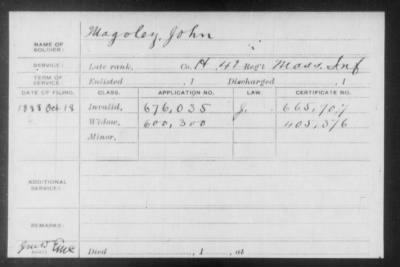 Magoley, John
NAME OF SOLDIER:
SERVICE: Late rank, Co. H, 42 Reg't Mass. Inf
TERM OF SERVICE: Enlisted , 1 Discharged , 1
DATE OF FILING. CLASS. APPLICATION NO. LAW. CERTIFICATE NO.
1888 Oct 18 Invalid, 676,035 G. 665,707
Widow, 600,300 405,376
Minor,
ADDITIONAL SERVICE:
REMARKS:
Died , 1 , at